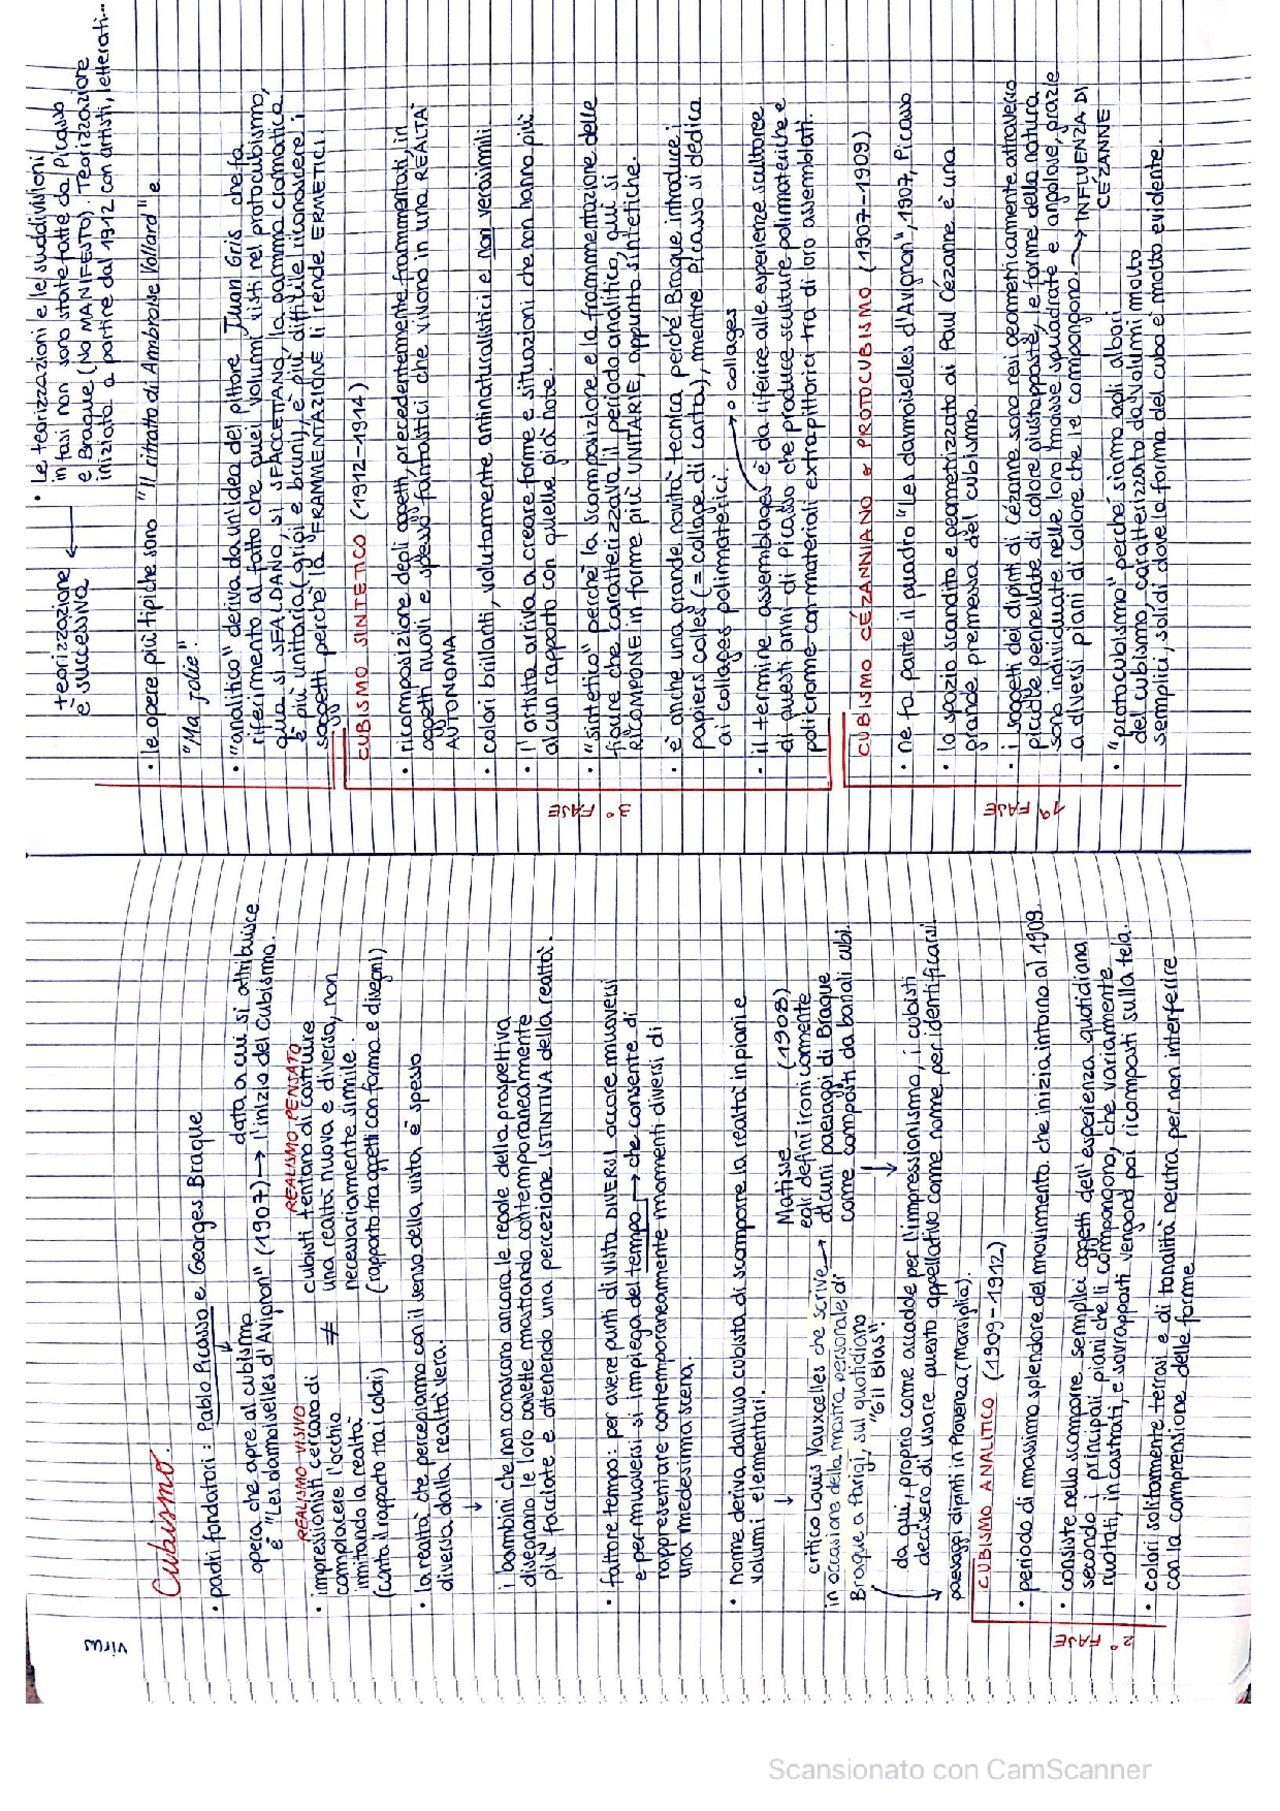 virus
Cubismo.
• padri fondatori: Pablo Picasso e Georges Braque
opera che apre al cubismo
è "Les damoiselles d'Avignon" (1907) → l'inizio del Cubismo.
data a cui si attribuisce
REALISMO VISIVO
• impressionisti cercano di
compiacere l'occhio
imitando la realtà
(conta il rapporto tra i colori)
≠
REALISMO PENSATO
cubisti tentano di costruire
una realtà nuova e diversa, non
necessariamente simile.
(rapporto tra oggetti con forma e disegni)
• la realtà che percepiamo con il senso della vista, è spesso
diversa dalla realtà vera.
↓
i bambini che non conoscono ancora le regole della prospettiva
disegnano le loro casette mostrando contemporaneamente
più facciate e ottenendo una percezione ISTINTIVA della realtà.
• fattore tempo: per avere punti di vista DIVERSI occorre muoversi
e per muoversi si impiega del tempo → che consente di
rappresentare contemporaneamente momenti diversi di
una medesima scena.
• nome deriva dall'uso cubista di scomporre la realtà in piani e
volumi elementari.
↓
Matisse (1908)
critico Louis Vauxcelles che scrive → egli definì ironicamente
in occasione della mostra personale di alcuni paesaggi di Braque
Braque a Parigi, sul quotidiano come composti da banali cubi.
"Gil Blas".
↓
da qui, proprio come accadde per l'impressionismo, i cubisti
decisero di usare questo appellativo come nome per identificarsi.
paesaggi dipinti in Provenza (Marsiglia).
CUBISMO ANALITICO (1909-1912)
2° FASE
• periodo di massimo splendore del movimento che inizia intorno al 1909.
• consiste nello scomporre semplici oggetti dell'esperienza quotidiana
secondo i principali piani che li compongono, che variamente
ruotati, incastrati, e sovrapposti vengono poi ricomposti sulla tela.
• colori solitamente terrosi e di tonalità neutra per non interferire
con la comprensione delle forme
teorizzazione
è successiva ←
• Le teorizzazioni e le suddivisioni
in fasi non sono state fatte da Picasso
e Braque (NO MANIFESTO). Teorizzazione
iniziata a partire dal 1912 con artisti, letterati...
• le opere più tipiche sono "Il ritratto di Ambroise Vollard" e
"Ma jolie".
• "analitico" deriva da un'idea del pittore Juan Gris che fa
riferimento al fatto che quei volumi visti nel protocubismo,
qua si SFALDANO, si SFACCETTANO, la gamma cromatica
è più unitaria (grigi e bruni), è più difficile riconoscere i
soggetti perché la FRAMMENTAZIONE li rende ERMETICI.
CUBISMO SINTETICO (1912-1914)
3° FASE
• ricomposizione degli oggetti, precedentemente frammentati, in
oggetti nuovi e spesso fantastici che vivono in una REALTÀ
AUTONOMA
• colori brillanti, volutamente antinaturalistici e non verosimili
• l'artista arriva a creare forme e situazioni che non hanno più
alcun rapporto con quelle già note.
• "sintetico" perchè la scomposizione e la frammentazione delle
figure che caratterizzava il periodo analitico, qui si
RICOMPONE in forme più UNITARIE, appunto sintetiche.
• è anche una grande novità tecnica perché Braque introduce i
papiers collés (= collage di carta), mentre Picasso si dedica
ai collages polimaterici. → collages
• il termine assemblages è da riferire alle esperienze scultoree
di questi anni di Picasso che produce sculture polimateriche e
policrome con materiali extrapittorici tra di loro assemblati.
CUBISMO CÉZANNIANO o PROTOCUBISMO (1907-1909)
1ª FASE
• ne fa parte il quadro "Les damoiselles d'Avignon", 1907, Picasso
• lo spazio scandito e geometrizzato di Paul Cézanne è una
grande premessa del cubismo.
• i soggetti dei dipinti di Cézanne sono resi geometricamente attraverso
piccole pennellate di colore giustapposte, le forme della natura
sono individuate nelle loro masse squadrate e angolose, grazie
a diversi piani di colore che le compongono. → INFLUENZA DI
CÉZANNE
• "protocubismo" perché siamo agli albori
del cubismo, caratterizzato da volumi molto
semplici, solidi dove la forma del cubo è molto evidente.
Scansionato con CamScanner